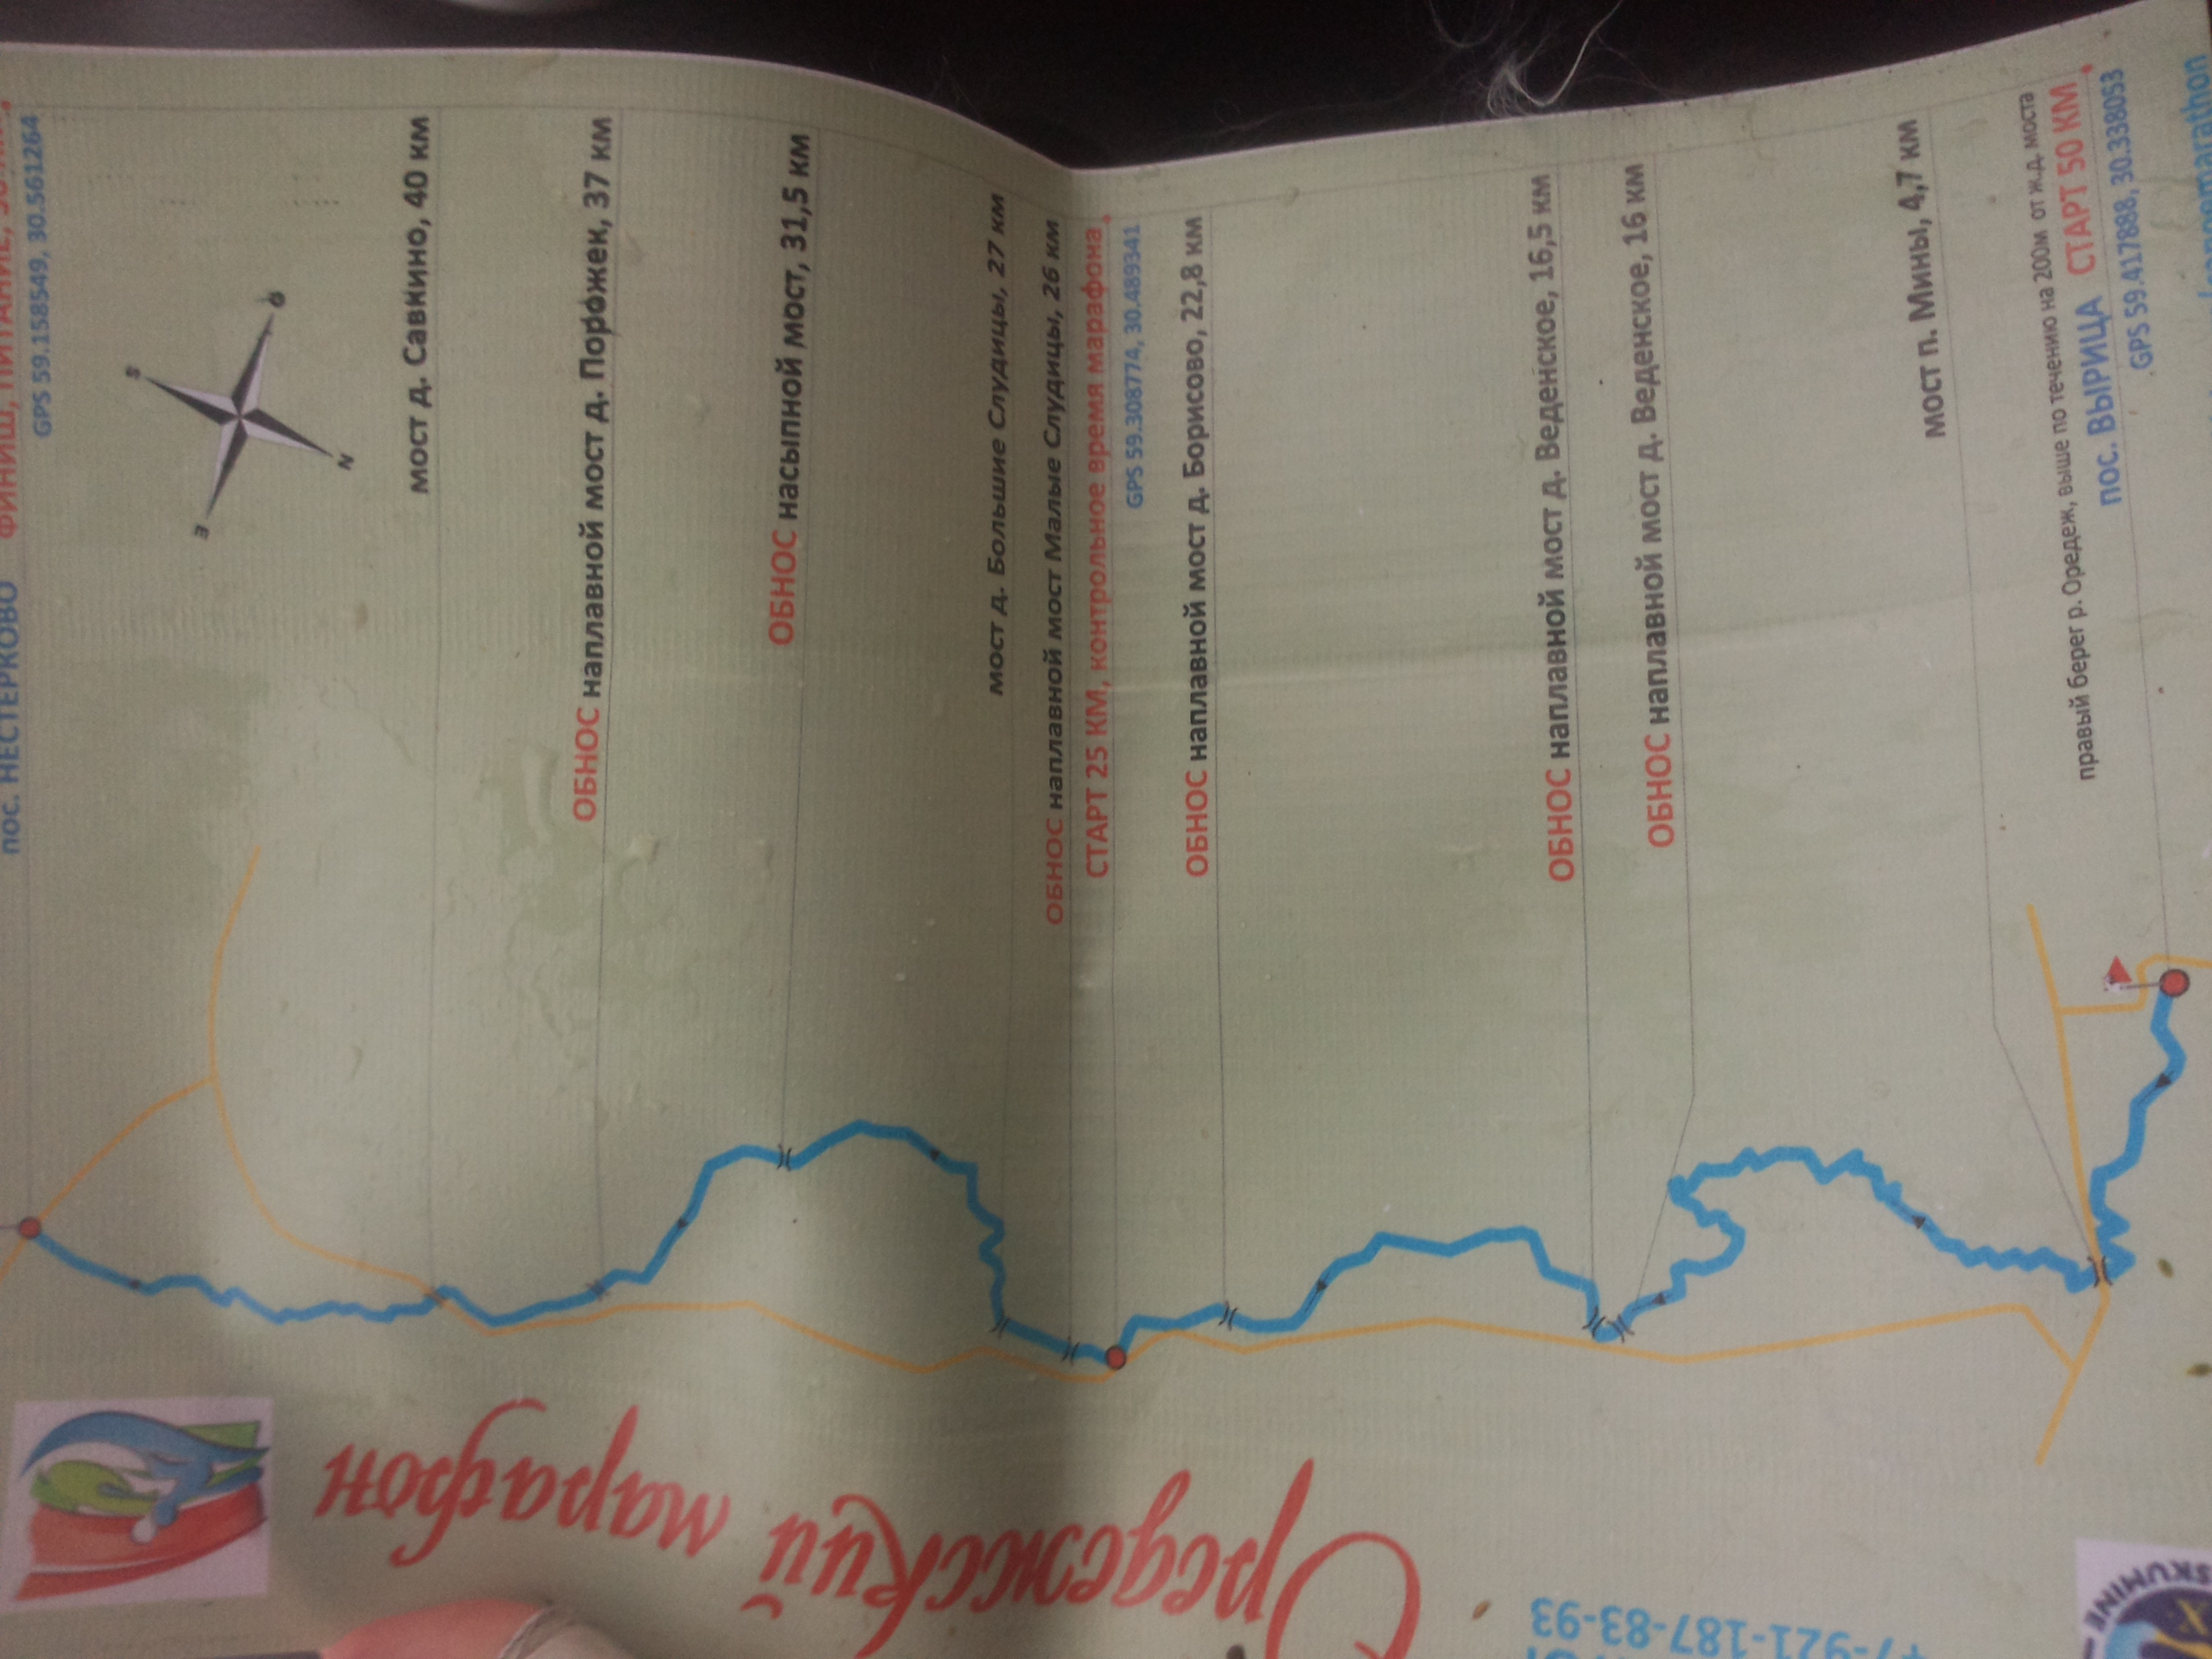 Оредежский марафон
+7-921-187-83-93
SKUMINE
пос. НЕСТЕРКОВО ФИНИШ, ПИТАНИЕ,
GPS 59.158549, 30.561264
S
O
E
N
мост д. Савкино, 40 км
ОБНОС наплавной мост д. Порожек, 37 км
ОБНОС насыпной мост, 31,5 км
мост д. Большие Слудицы, 27 км
ОБНОС наплавной мост Малые Слудицы, 26 км
СТАРТ 25 КМ, контрольное время марафона
GPS 59.308774, 30.489341
ОБНОС наплавной мост д. Борисово, 22,8 км
ОБНОС наплавной мост д. Веденское, 16,5 км
ОБНОС наплавной мост д. Веденское, 16 км
мост п. Мины, 4,7 км
правый берег р. Оредеж, выше по течению на 200м от ж.д. моста
пос. ВЫРИЦА СТАРТ 50 КМ
GPS 59.417888, 30.338053